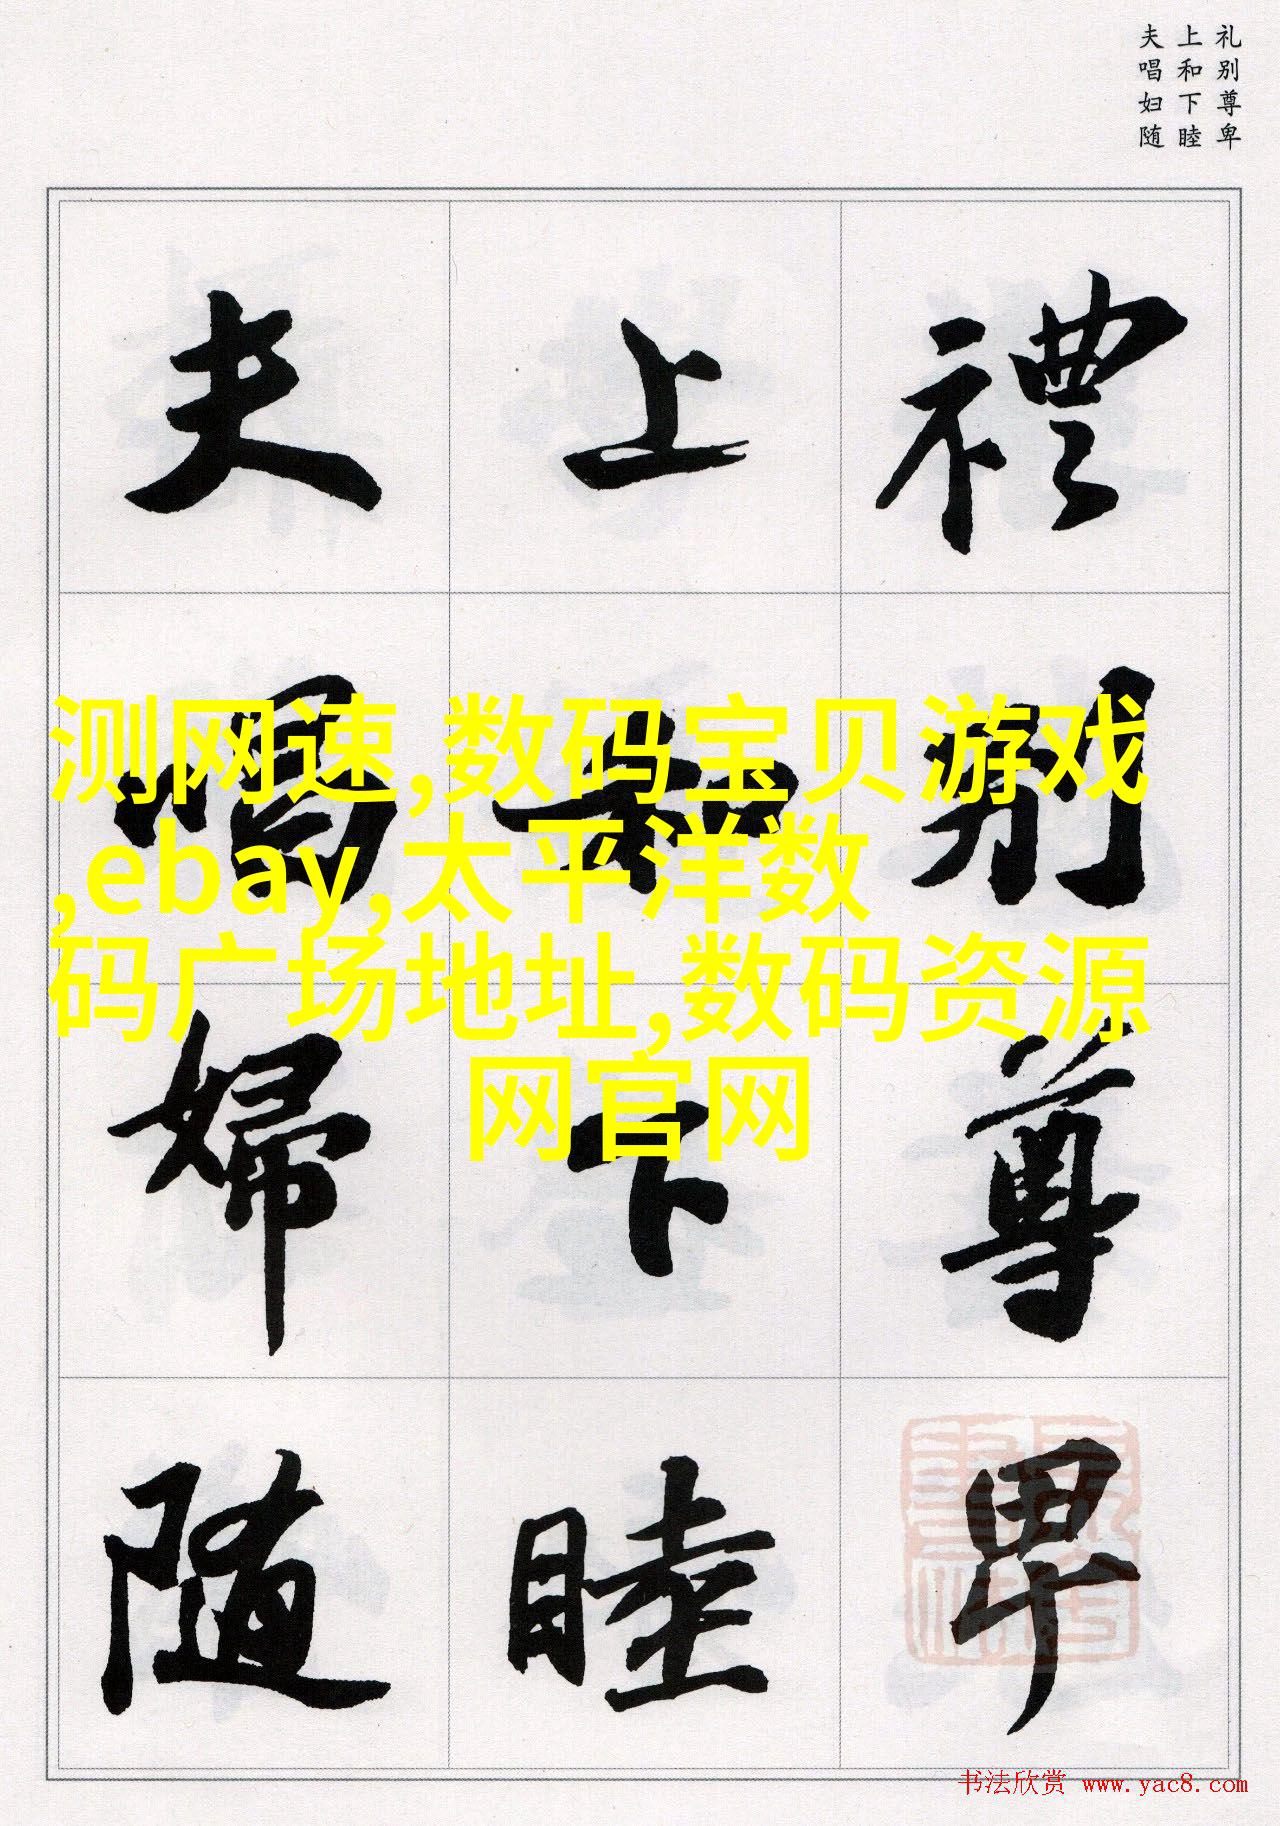 礼别尊卑
上和下睦
夫唱妇随
禮別尊卑
上和下睦
夫唱婦随
测网速,数码宝贝游戏
,ebay,太平洋数
码广场地址,数码资源
网官网
书法欣赏 www.yac8.com